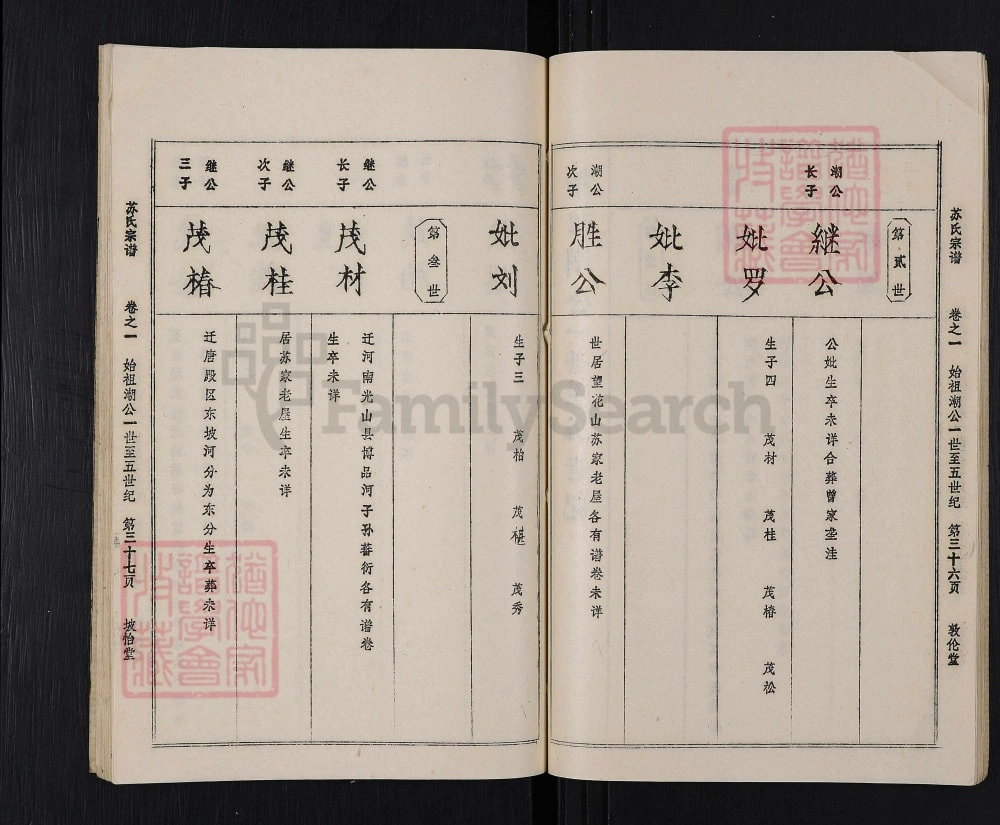 苏氏宗谱 卷之一 始祖湖公一世至五世纪 第三十六页 敦伦堂
第贰世
湖公
长子
继公
公妣生卒未详合葬曾家垄洼
妣罗
生子四 茂材 茂桂 茂椿 茂松
妣李
湖公
次子
胜公
世居望花山苏家老屋各有谱卷未详
妣刘
生子三 茂柏 茂椹 茂秀
第叁世
继公
长子
茂材
迁河南光山县博品河子孙蕃衍各有谱卷
生卒未详
继公
次子
茂桂
居苏家老屋生卒未详
继公
三子
茂椿
迁唐殿区东坡河分为东分生卒葬未详
苏氏宗谱 卷之一 始祖湖公一世至五世纪 第三十七页 坡怡堂
FamilySearch